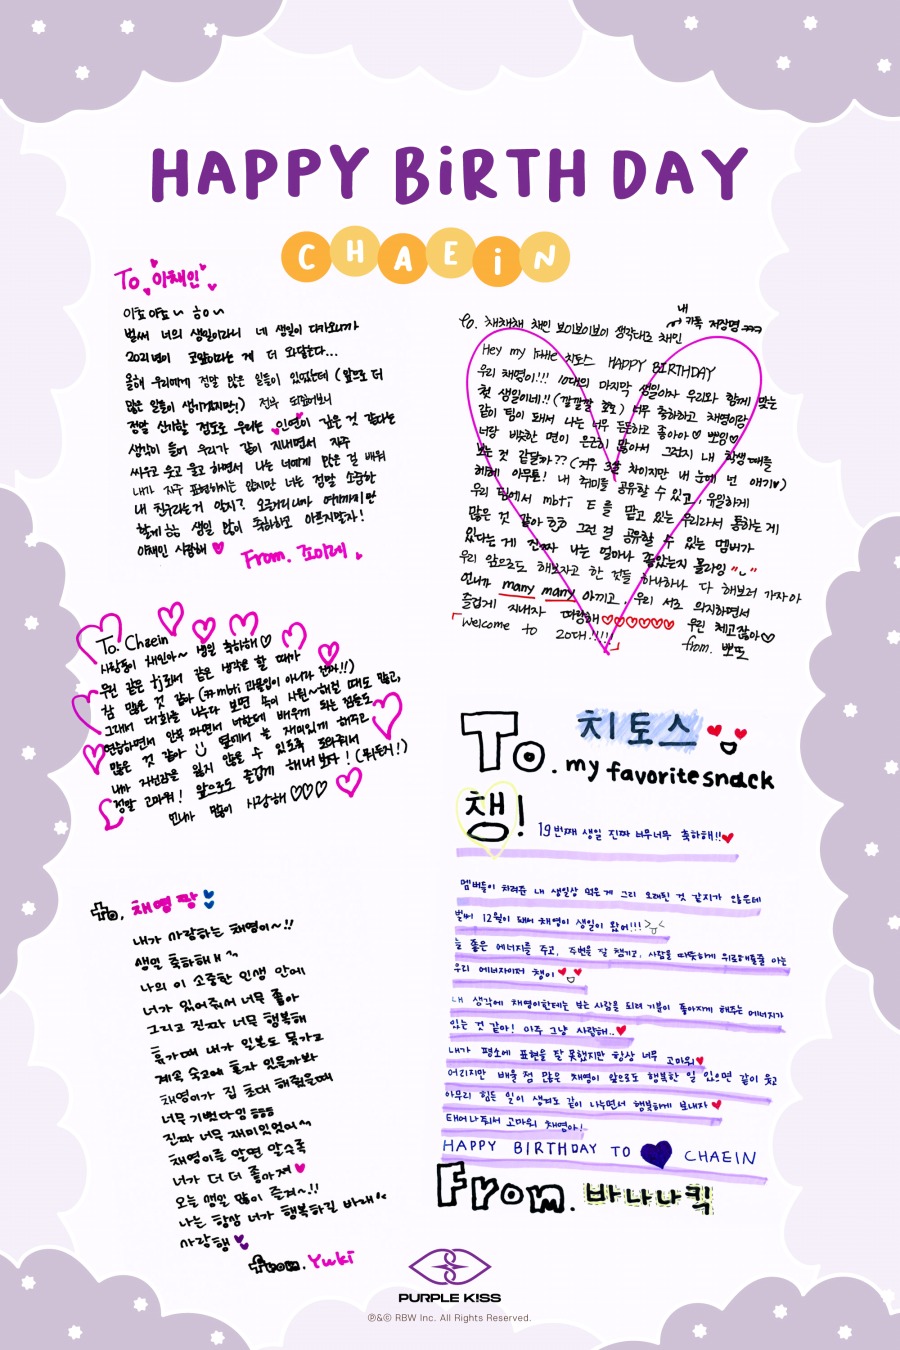 HAPPY BiRTH DAY
CHAEiN
To. 이채인
벌써 너의 생일이라니 네 생일이 다가오니까
2021년이 코앞이라는 게 더 와닿는다...
올해 우리에게 정말 많은 일들이 있었는데 (앞으로 더
많은 일들이 생기겠지만!) 전부 되짚어보니
정말 신기할 정도로 우리는 인연이 깊은 것 같다는
생각이 들어 우리가 같이 지내면서 자주
싸우고 웃고 울고 하면서 나는 너에게 많은 걸 배워
내가 자주 표현하지는 않지만 너는 정말 소중한
내 친구라는거 알지? 오글거리니까 여기까지만
함께 생일 많이 축하하고 아프지말자!
이채인 사랑해 ♥
From. 조미래
내 카톡 저장명
to. 채채채 채인 보이보이보이 생각대로 채인
Hey my little 치토스 HAPPY BIRTHDAY
우리 채영이!!! 10대의 마지막 생일이자 우리와 함께 맞는
첫 생일이네!! (깔깔깔 호호) 너무 축하하고 채영이랑
같이 팀이 돼서 나는 너무 든든하고 좋아아♡ 뽀잉♡
너랑 비슷한 면이 은근히 많아서 그런지 내 학생 때를
보는 것 같달까?? (겨우 3살 차이지만 내 눈에 넌 애기♡)
헤헤 아무튼! 내 취미를 공유할 수 있고, 유일하게
우리 팀에서 mbti E를 맡고 있는 우리라서 통하는 게
많은 것 같아 그런 걸 공유할 수 있는 멤버가
있다는 게 진짜 나는 얼마나 좋았는지 몰라잉
우리 앞으로도 해보자고 한 것들 하나하나 다 해보러 가자아
언니가 many many 아끼고, 우리 서로 의지하면서
즐겁게 지내자 따랑해♡♡♡♡♡♡ 우린 체고잖아♡
「Welcome to 20대!!!!」
from. 뽀또
To. Chaein
사랑둥이 채인아~ 생일 축하해♡
우린 같은 tj로서 같은 생각을 할 때가
참 많은 것 같아 (뀨mbti 과몰입이 아니라 진짜!!)
그래서 대화를 나누다 보면 속이 시원~해질 때도 많고,
연습하면서 안무 따면서 너한테 배우게 되는 점들도
많은 것 같아 옆에서 늘 재미있게 해주고
내가 자신감을 잃지 않을 수 있도록 도와줘서
정말 고마워! 앞으로도 즐겁게 해내보자! (뀌호!)
언니가 많이 사랑해♡♡♡
To. 치토스
my favorite snack
챙! 19번째 생일 진짜 너무너무 축하해!!♥
멤버들이 차려준 내 생일상 먹은게 그리 오래된 것 같지가 않은데
벌써 12월이 돼서 채영이 생일이 왔어!!!
늘 좋은 에너지를 주고, 주변을 잘 챙기고, 사람을 따뜻하게 위로해줄줄 아는
우리 에너자이저 챙이
내 생각에 채영이한테는 보는 사람을 되려 기분이 좋아지게 해주는 에너지가
있는 것 같아! 아주 그냥 사랑해..♥
내가 평소에 표현을 잘 못했지만 항상 너무 고마워♥
어리지만 배울 점 많은 채영이 앞으로도 행복한 일 있으면 같이 웃고
아무리 힘든 일이 생겨도 같이 나누면서 행복하게 보내자♥
태어나줘서 고마워 채영아!
HAPPY BIRTHDAY TO ♥ CHAEIN
From. 바나나킥
to. 채영 짱
내가 사랑하는 채영이~!!
생일 축하해ㅐ
나의 이 소중한 인생 안에
너가 있어줘서 너무 좋아
그리고 진짜 너무 행복해
휴가때 내가 일본도 못가고
계속 숙소에 혼자 있을까봐
채영이가 집 초대 해줬을때
너무 기뻤다잉
진짜 너무 재미있었어
채영이를 알면 알수록
너가 더 더 좋아져♥
오늘 생일 많이 즐겨~!!
나는 항상 너가 행복하길 바래
사랑행
from. Yuki
PURPLE K!SS
℗&© RBW Inc. All Rights Reserved.